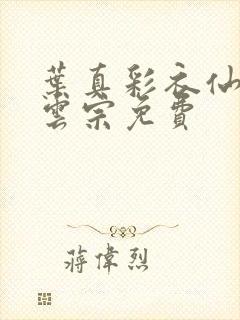 葉真彩衣仙
雲宗免費
蔣偉烈